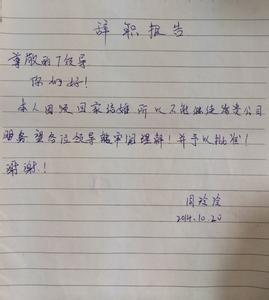 辞职报告
尊敬的领导
你们好！
本人因须回家结婚所以不能继续为贵公司
服务望各位领导能牢固理解！并予以批准！
谢谢！
周玲玲
2014.10.20